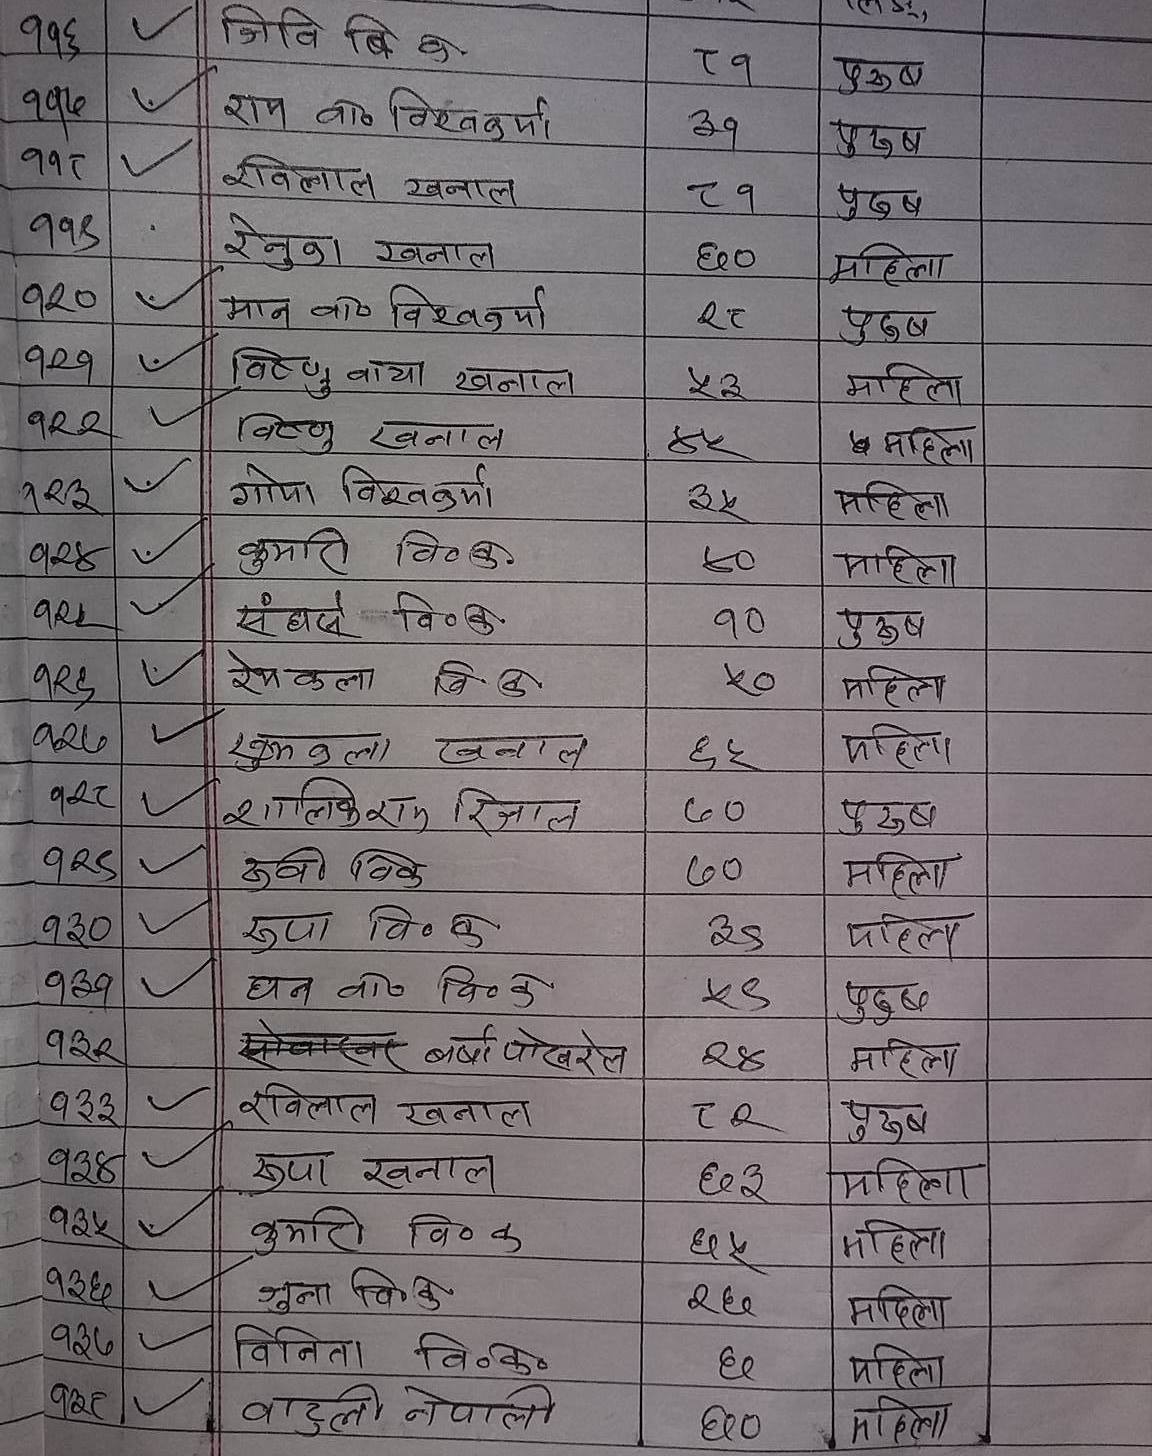 ११६ जिवि बि क ८१ पुरुष
११७ राम ब० विश्वकर्मा ३१ पुरुष
११८ रविलाल खनाल ८१ पुरुष
११९ रेनुका खनाल ६० महिला
१२० मान ब० विश्वकर्मा २८ पुरुष
१२१ विष्णु माया खनाल ५३ महिला
१२२ विष्णु खनाल ४५ महिला
१२३ गोमा विश्वकर्मा ३५ महिला
१२४ कुमारी वि०क. ४० महिला
१२५ संघर्ष वि०क. १० पुरुष
१२६ रेमकला बि क ५० महिला
१२७ खुमकला खनाल ६५ महिला
१२८ शालिकिराम रिजाल ७० पुरुष
१२९ रुवी विक ७० महिला
१३० रुपा वि०क ३९ महिला
१३१ धन ब० वि०क ५९ पुरुष
१३२ वर्षा पोखरेल २४ महिला
१३३ रविलाल खनाल ८२ पुरुष
१३४ रुपा खनाल ६३ महिला
१३५ कुमारी वि०क ६५ महिला
१३६ जुना वि.क २६ महिला
१३७ विनिता वि०क० ६ महिला
१३८ वाटुली नेपाली ६० महिला